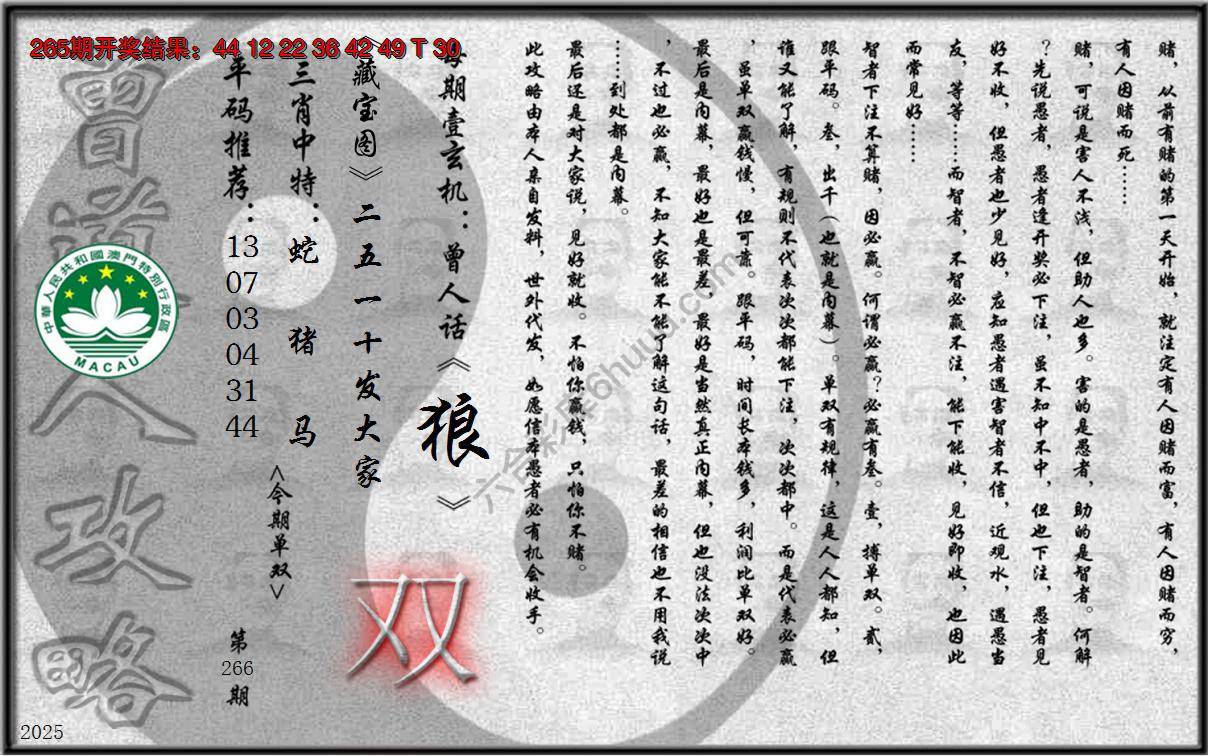 265期开奖结果：44 12 22 36 42 49 T 30
赌，从前有赌的第一天开始，就注定有人因赌而富，有人因赌而穷，
有人因赌而死……
赌，可说是害人不浅，但助人也多。害的是愚者，助的是智者。何解
？先说愚者，愚者逢开奖必下注，虽不知中不中，但也下注，愚者见
好不收，但愚者也少见好，应知愚者遇害智者不信，近观水，遇愚当
友，等等……而智者，不智必赢不注，能下能收，见好即收，也因此
而常见好……
智者下注不算赌，因必赢。何谓必赢？必赢有叁。壹，搏单双。贰，
跟平码。叁，出千（也就是内幕）。单双有规律，这是人人都知，但
谁又能了解，有规则不代表次次都能下注，次次都中。而是代表必赢
，虽单双赢钱慢，但可靠。跟平码，时间长本钱多，利润比单双好。
最后是内幕，最好也是最差，最好是当然真正内幕，但也没法次次中
，不过也必赢，不知大家能不能了解这句话，最差的相信也不用我说
……到处都是内幕。
最后还是对大家说，见好就收。不怕你赢钱，只怕你不赌。
此攻略由本人亲自发料，世外代发，如愿信本愚者必有机会收手。
每期壹玄机：曾人话《狼》
《藏宝图》二五一十发大家
双
三肖中特：蛇 猪 马
<今期单双>
平码推荐：13 07 03 04 31 44
第266期
曾道人攻略
中華人民共和國澳門特別行政區
MACAU
六合彩库6huuu.com
2025